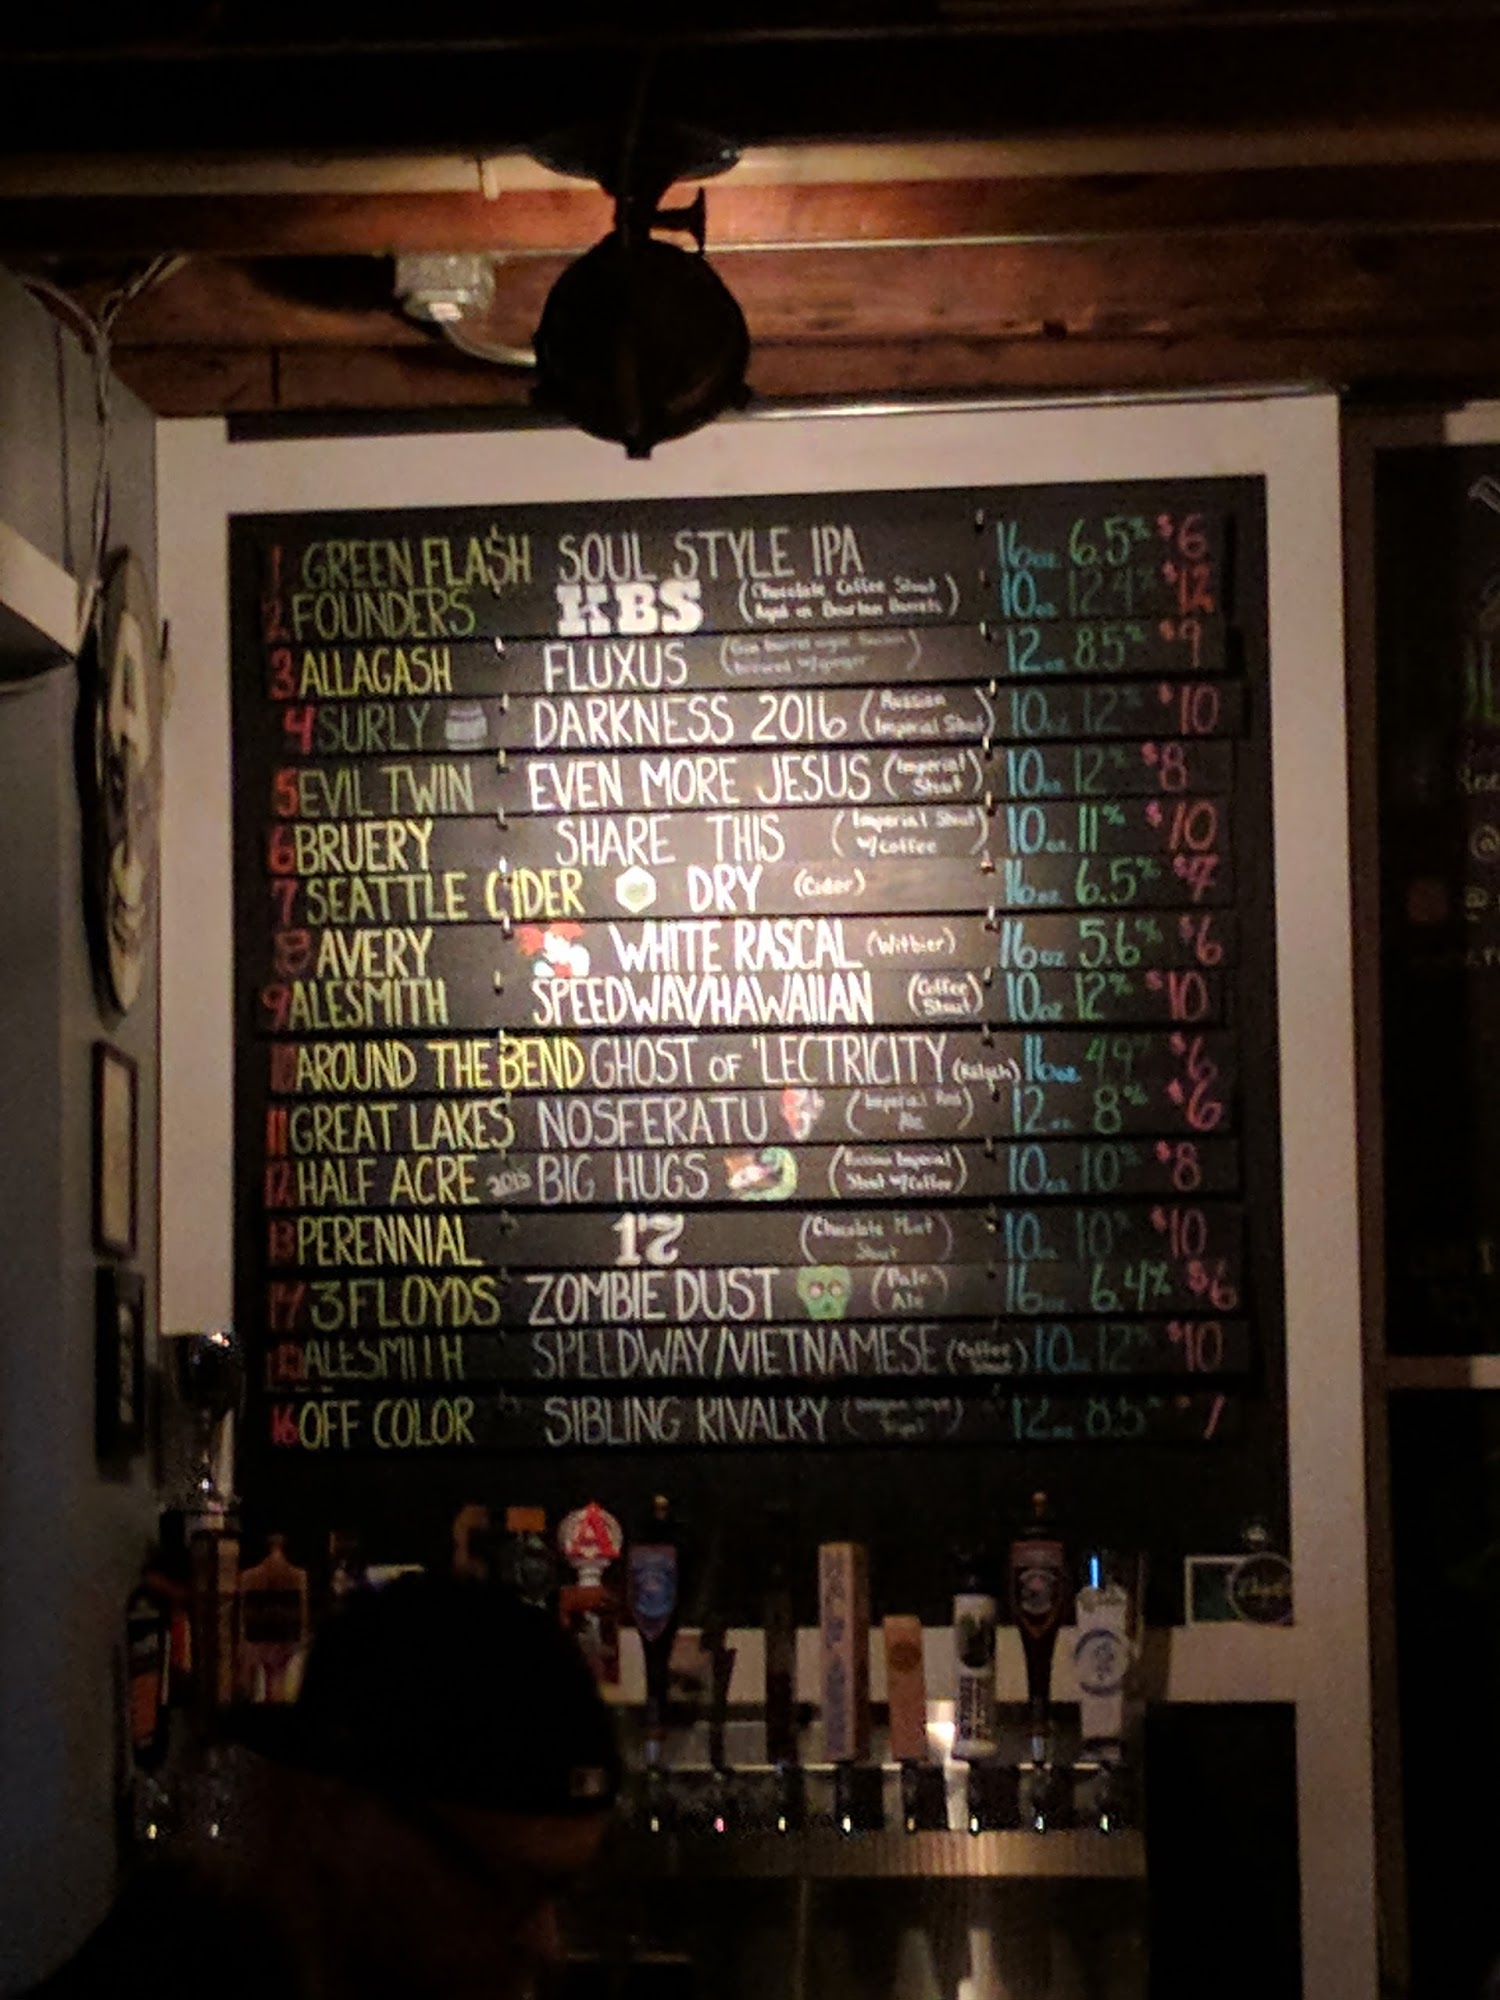 1 GREEN FLA$H SOUL STYLE IPA 16oz 6.5% $6
2 FOUNDERS KBS (Chocolate Coffee Stout Aged in Bourbon Barrels) 10oz 12.4% $12
3 ALLAGASH FLUXUS 12oz 8.5% $9
4 SURLY DARKNESS 2016 (Russian Imperial Stout) 10oz 12% $10
5 EVIL TWIN EVEN MORE JESUS (Imperial Stout) 10oz 12% $8
6 BRUERY SHARE THIS (Imperial Stout w/coffee) 10oz 11% $10
7 SEATTLE CIDER DRY (Cider) 16oz 6.5% $7
8 AVERY WHITE RASCAL (Witbier) 16oz 5.6% $6
9 ALESMITH SPEEDWAY/HAWAIIAN (Coffee Stout) 10oz 12% $10
10 AROUND THE BEND GHOST OF 'LECTRICITY 16oz 4.9% $6
11 GREAT LAKES NOSFERATU (Imperial Red Ale) 12oz 8% $6
12 HALF ACRE 2015 BIG HUGS (Russian Imperial Stout w/Coffee) 10oz 10% $8
13 PERENNIAL 17 (Chocolate Mint Stout) 10oz 10% $10
14 3 FLOYDS ZOMBIE DUST (Pale Ale) 16oz 6.4% $6
15 ALESMITH SPEEDWAY/VIETNAMESE (Coffee Stout) 10oz 12% $10
16 OFF COLOR SIBLING RIVALRY 12oz 8.5% $7
A